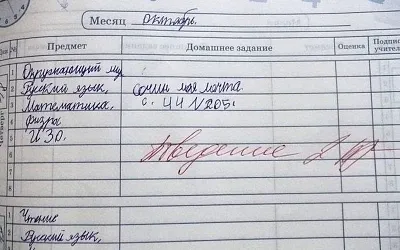 Месяц октябрь.
№ Предмет Домашнее задание Оценка Подпись учителя
1 Окружающий м
2 Русский язык, сочин. моя мечта
3 Математика, с. 44 №205.
4 физра
5 ИЗО.
6 Поведение 2
7
8
1 Чтение
2 Русский язык,